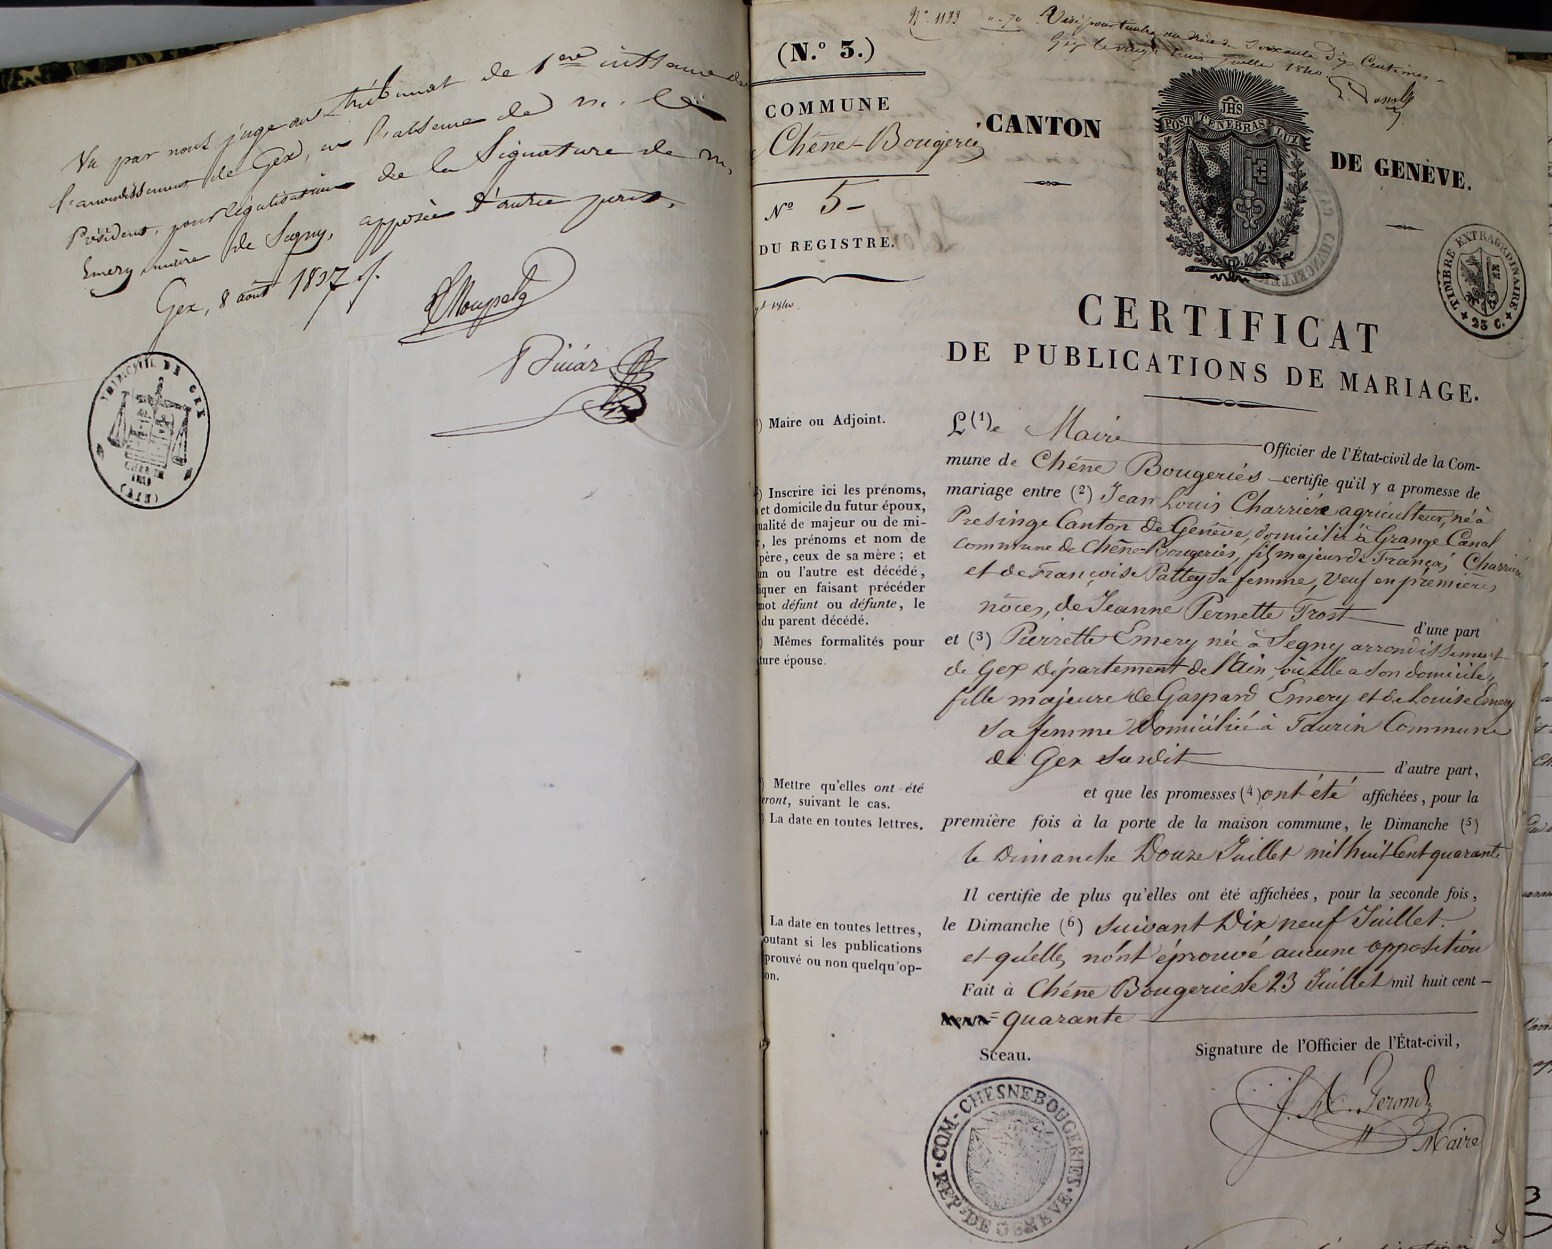 Vu par nous juge au tribunal de 1ere instance de
l'arrondissement de Gex, en l'absence de M. le
Président, pour légalisation de la Signature de M.
Emery maire de Segny, apposée d'autre part.
Gex, 8 août 1837
TRIB. CIVIL DE GEX
(AIN)
N° 1193 0-70 Visé pour timbre au droit de Soixante Dix Centimes
Gex le vingt Juillet 1840
(N.° 3.)
COMMUNE
Chêne-Bougeries
N° 5-
DU REGISTRE.
CANTON
DE GENÈVE.
JHS
POST TENEBRAS LUX
TIMBRE EXTRAORDINAIRE
25 C.
CERTIFICAT
DE PUBLICATIONS DE MARIAGE.
) Maire ou Adjoint.
) Inscrire ici les prénoms,
et domicile du futur époux,
ualité de majeur ou de mi-
, les prénoms et nom de
père, ceux de sa mère; et
un ou l'autre est décédé,
iquer en faisant précéder
mot défunt ou défunte, le
du parent décédé.
) Mêmes formalités pour
ture épouse.
) Mettre qu'elles ont été
eront, suivant le cas.
) La date en toutes lettres.
La date en toutes lettres,
outant si les publications
prouvé ou non quelqu'op-
on.
L(1)e Maire Officier de l'État-civil de la Com-
mune de Chêne Bougeries certifie qu'il y a promesse de
mariage entre (2) Jean Louis Charrière agriculteur, né à
Presinge Canton de Genève, domicilié à Grange Canal
Commune de Chêne-Bougeries, fils majeur de François Charrière
et de Françoise Pattey sa femme, Veuf en premières
nôces, de Jeanne Pernette Trost d'une part
et (3) Pierrette Emery née à Segny arrondissement
de Gex département de l'Ain, où elle a son domicile,
fille majeure de Gaspard Emery et de Louise Emery
sa femme Domicilié à Taurin Commune
de Gex susdit d'autre part,
et que les promesses (4) ont été affichées, pour la
première fois à la porte de la maison commune, le Dimanche (5)
le Dimanche Douze Juillet mil huit Cent quarante
Il certifie de plus qu'elles ont été affichées, pour la seconde fois,
le Dimanche (6) suivant Dix neuf Juillet
et qu'elles n'ont éprouvé aucune opposition
Fait à Chêne Bougeries le 23 Juillet mil huit cent
quarante
Sceau.
Signature de l'Officier de l'État-civil,
Maire
COM. CHESNEBOUGERIES.
REP. DE GENEVE